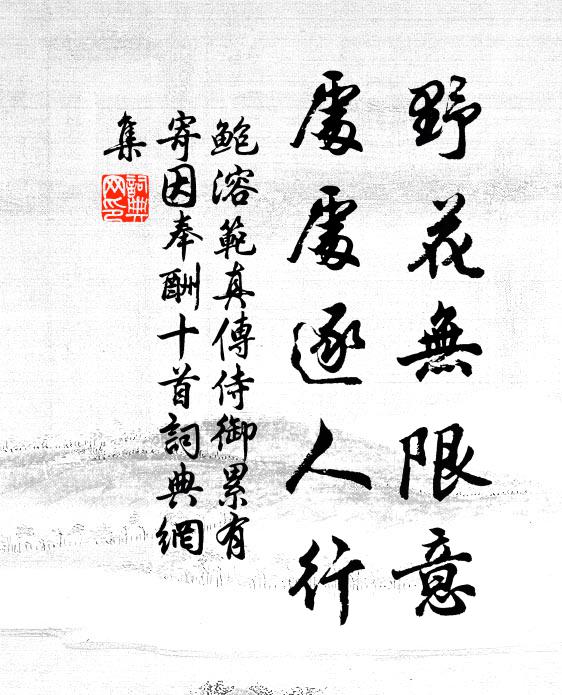 野花無限意
處處逐人行
鮑溶範真傳侍御累有
寄因奉酬十首詞典網
集
詞典
网印